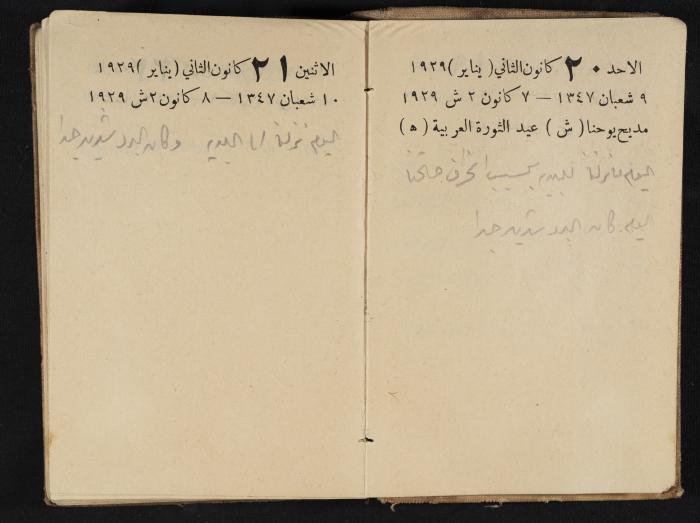 الاحد ٢٠ كانون الثاني (يناير) ١٩٢٩
٩ شعبان ١٣٤٧ — ٧ كانون ٢ ش ١٩٢٩
مديح يوحنا (ش) عيد الثورة العربية (ه)
اليوم ما نزلنا للبلديه بسبب
اليوم كان البرد شديد جدا
الاثنين ٢١ كانون الثاني (يناير) ١٩٢٩
١٠ شعبان ١٣٤٧ — ٨ كانون ٢ ش ١٩٢٩
اليوم نزلنا البلديه وكان البرد شديد جدا